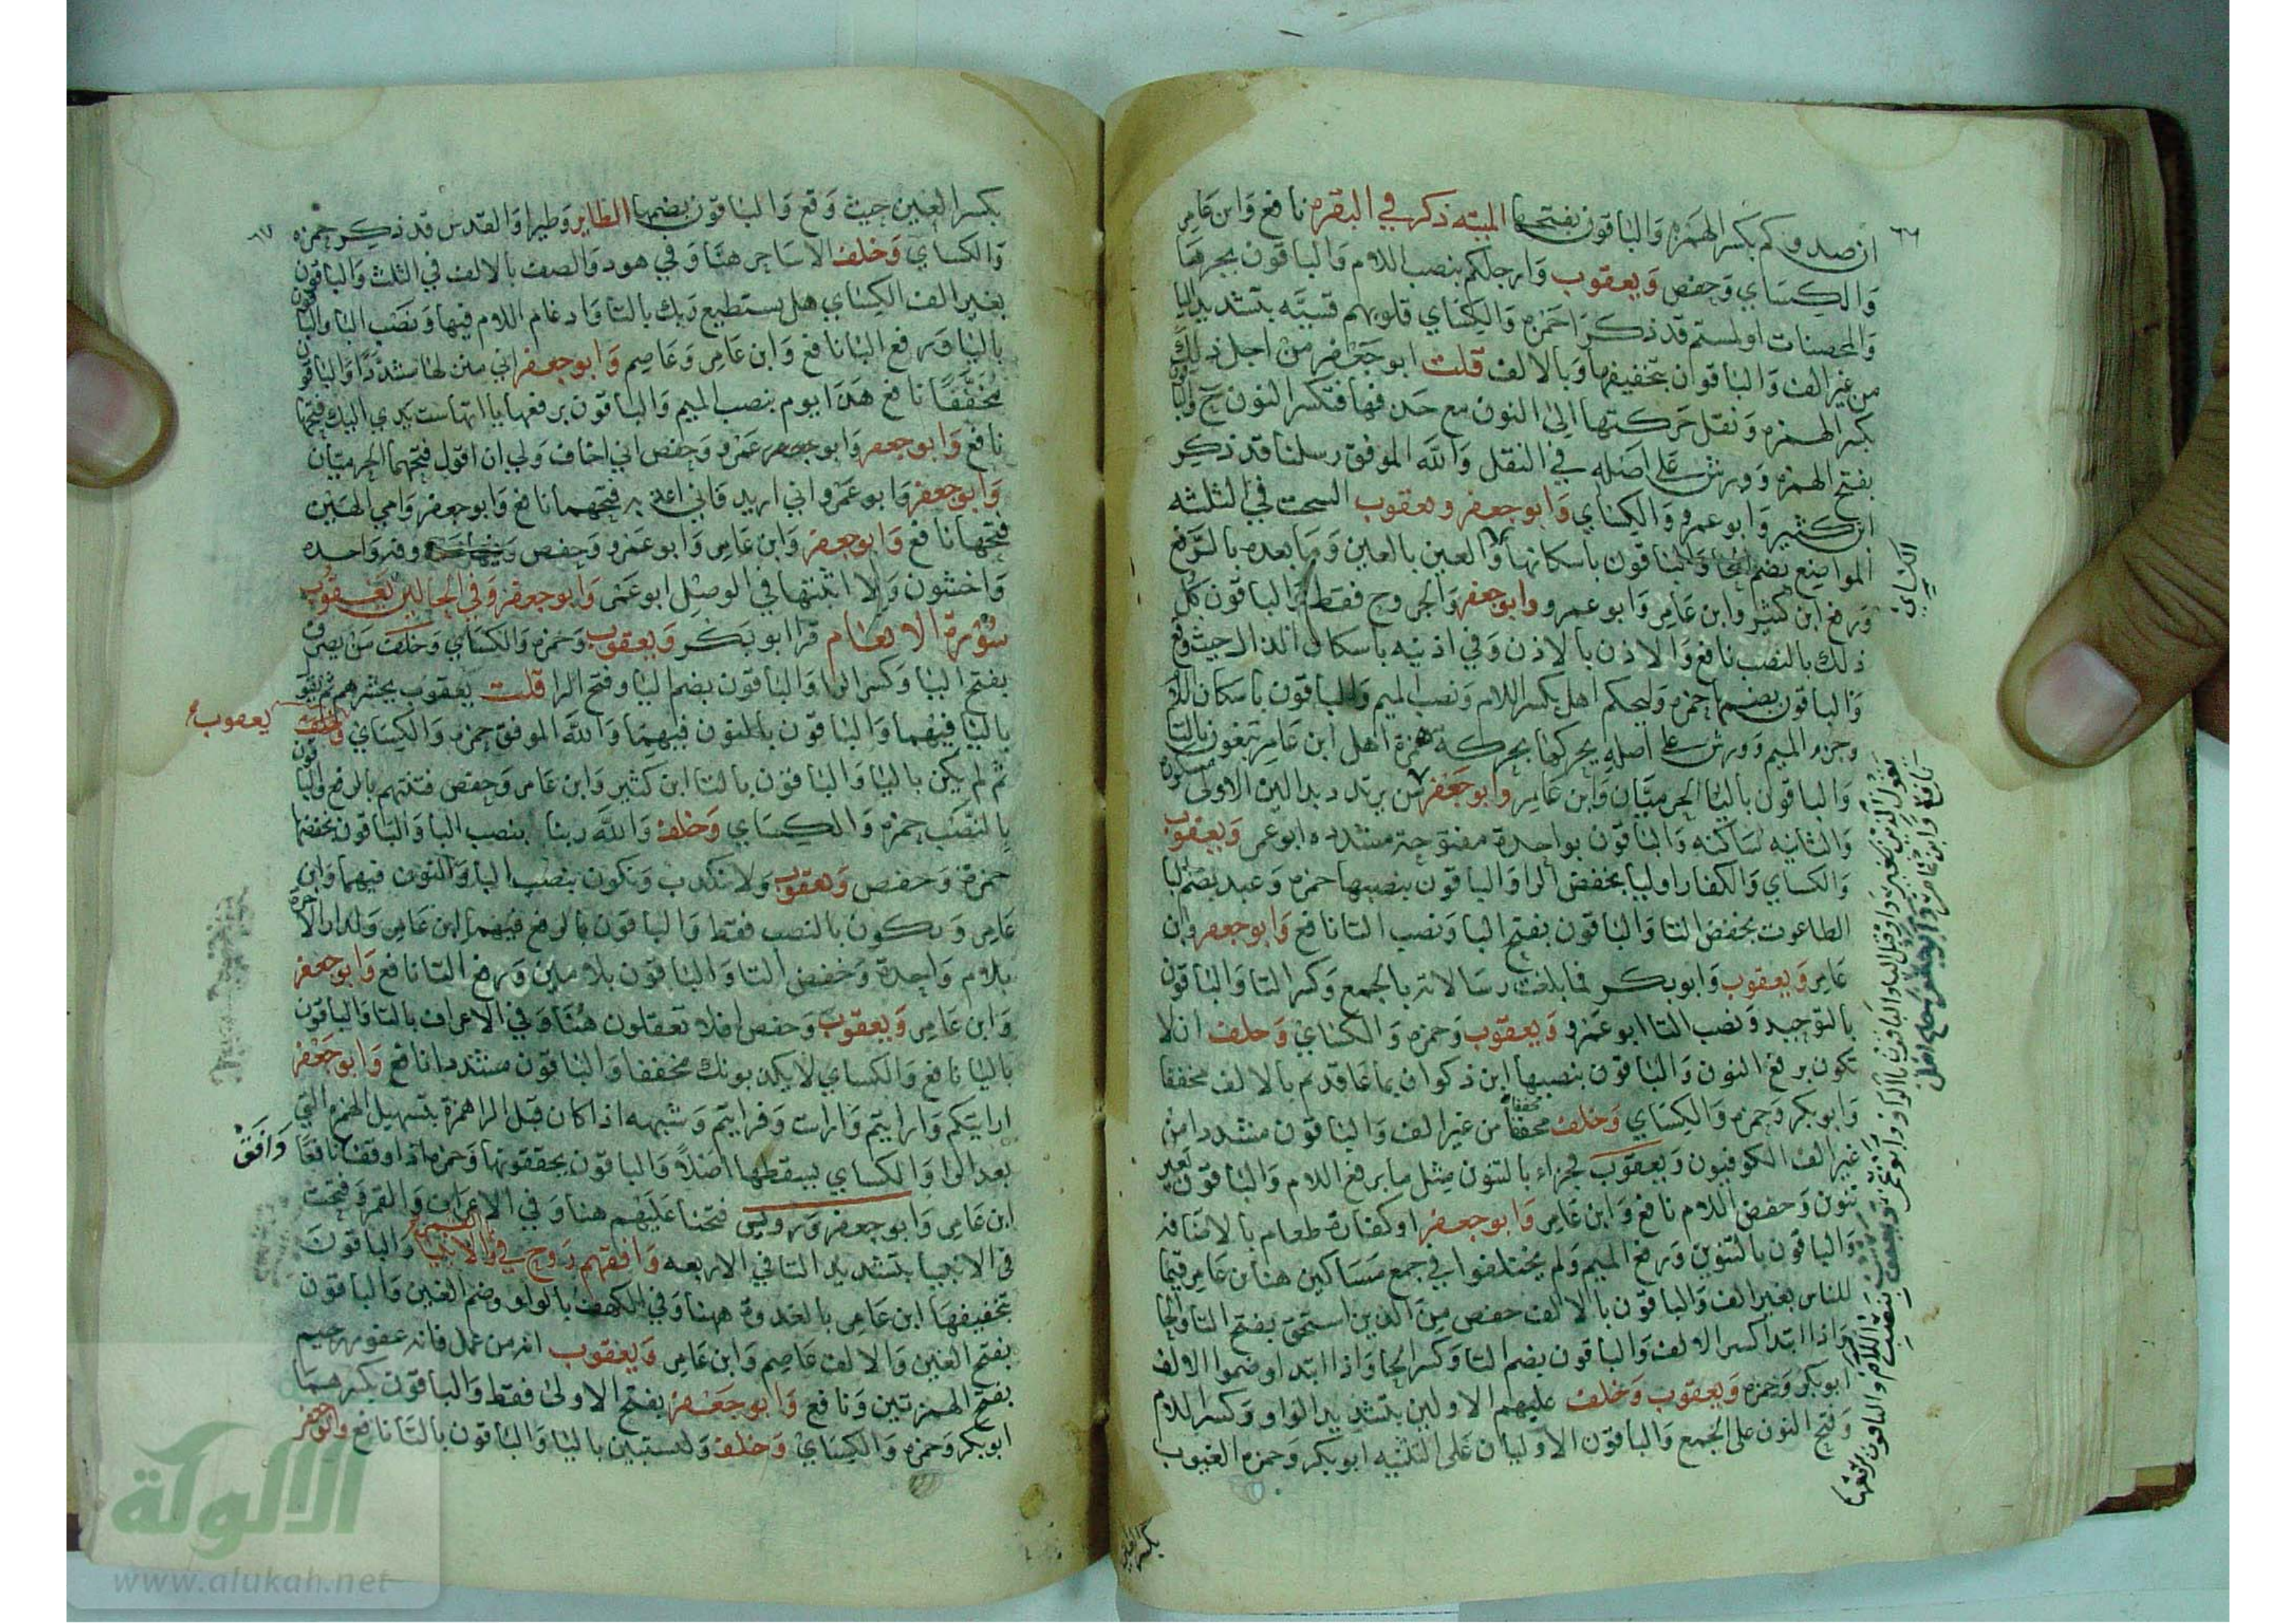 ان صدوكم بكسر الهمزه والباقون بفتحها الميته ذكر في البقره نافع وابن عامر
والكساي وحفص ويعقوب وارجلكم بنصب اللام والباقون بجرها
والمحصنات اولمستم قد ذكر حمزه والكساي قلوبهم قسيه بتشديد اليا
من غير الف والباقون بتخفيفها وبالالف قلت ابو جعفر من اجل ذلك
بكسر الهمزه ونقل حركتها الى النون مع حذفها فتكسر النون ح والباقون
بفتح الهمزه وورش على اصله في النقل والله الموفق رسلنا قد ذكر
ابن كثير وابو عمرو والكساي وابو جعفر ويعقوب السحت في الثلثه
المواضع بضم الحا والباقون باسكانها والعين بالعين وما بعده بالرفع
ورفع ابن كثير وابن عامر وابو عمرو وابو جعفر والجروح فقط والباقون كل
ذلك بالنصب نافع والاذن بالاذن وفي اذنيه باسكان الذال حيث وقع
والباقون بضمها حمزه وليحكم اهل بكسر اللام ونصب الميم والباقون باسكان اللام
وجزم الميم وورش على اصله يحركها بحركه همزة اهل ابن عامر تبغون بالتا
والباقون باليا الحرميان وابن عامر وابو جعفر من يرتدد بدالين الاولى مكسورة
والثانيه ساكنه والباقون بواحدة مفتوحة مشدده ابو عمر ويعقوب
والكساي والكفار اوليا بخفض الرا والباقون بنصبها حمزه وعبد بضم البا
الطاغوت بخفض التا والباقون بفتح البا ونصب التا نافع وابو جعفر وابن
عامر ويعقوب وابو بكر فما بلغت رسالاته بالجمع وكسر التا والباقون
بالتوحيد ونصب التا ابو عمرو ويعقوب وحمزه والكساي وخلف ان لا
تكون برفع النون والباقون بنصبها ابن ذكوان بما عاقدتم بالالف مخففا
وابو بكر وحمزه والكساي وخلف مخففا من غير الف والباقون مشددا من
غير الف الكوفيون ويعقوب فجزاء بالتنوين مثل ما برفع اللام والباقون بغير
تنوين وخفض اللام نافع وابن عامر وابو جعفر او كفارة طعام بالاضافه
والباقون بالتنوين ورفع الميم ولم يختلفوا في جمع مساكين هنا ابن عامر قيما
للناس بغير الف والباقون بالالف حفص من الذين استحق بفتح التا والحا
واذا ابتدا كسر الالف والباقون بضم التا وكسر الحا واذا ابتداو ضموا الالف
ابو بكر وحمزه ويعقوب وخلف عليهم الاولين بتشديد الواو وكسر اللام
وفتح النون على الجمع والباقون الاوليان على التثنيه ابو بكر وحمزه الغيوب
الكساي
بكسر الغين
بكسر الغين حيث وقع والباقون بضمها الطاير وطيرا والقدس قد ذكر حمزه
والكساي وخلف الا ساحر هنا وفي هود والصف بالالف في الثلث والباقون
بغير الف الكساي هل يستطيع ربك بالتا وادغام اللام فيها ونصب البا والباقون
باليا ورفع البا نافع وابن عامر وعاصم وابو جعفر اني منزلها مشددا والباقون
مخففا نافع هذا يوم بنصب الميم والباقون برفعها ياءاتها ست يدي اليك فتحها
نافع وابو جعفر وابو عمرو وحفص اني اخاف ولي ان اقول فتحهما الحرميان
وابو جعفر وابو عمرو اني اريد فاني اعذبه فتحهما نافع وابو جعفر وامي الهين
فتحها نافع وابو جعفر وابن عامر وابو عمرو وحفص وفيها محذوفه واحده
واخشون ولا اثبتها في الوصل ابو عمر وابو جعفر وفي الحالين يعقوب
سورة الانعام قرا ابو بكر ويعقوب وحمزه والكساي وخلف من يصرف
بفتح اليا وكسر الرا والباقون بضم اليا وفتح الرا قلت يعقوب يحشرهم ثم يقول
باليا فيهما والباقون بالنون فيهما والله الموفق حمزه والكساي ويعقوب
ثم لم يكن باليا والباقون بالتا ابن كثير وابن عامر وحفص فتنتهم بالرفع والباقون
بالنصب حمزه والكساي وخلف والله ربنا بنصب البا والباقون بخفضها
حمزة وحفص ويعقوب ولا نكذب ونكون بنصب البا والنون فيهما وابن
عامر ونكون بالنصب فقط والباقون بالرفع فيهما ابن عامر ولدار الاخرة
بلام واحدة وخفض التا والباقون بلامين ورفع التا نافع وابو جعفر
وابن عامر ويعقوب وحفص افلا تعقلون هنا وفي الاعراف بالتا والباقون
باليا نافع والكساي لا يكذبونك مخففا والباقون مشددا نافع وابو جعفر
ارايتكم وارايتم وارايت وفرايتم وشبهه اذا كان قبل الرا همزة بتسهيل الهمزه التي
بعد الرا والكساي يسقطها اصلا والباقون يحققونها وحمزه اذا وقف نافعا
وافق
ابن عامر وابو جعفر ورويس فتحنا عليهم هنا وفي الاعراف والقمر وفتحت
في الانبيا بتشديد التا في الاربعه وافقهم روح في القمر والانبيا والباقون
بتخفيفها ابن عامر بالغدوة ههنا وفي الكهف بالواو وضم الغين والباقون
بفتح الغين والالف عاصم وابن عامر ويعقوب انه من عمل فانه غفور رحيم
بفتح الهمزتين ونافع وابو جعفر بفتح الاولى فقط والباقون بكسرهما
ابو بكر وحمزه والكساي وخلف وليستبين باليا والباقون بالتا نافع وابو جعفر
الألوكة
www.alukah.net